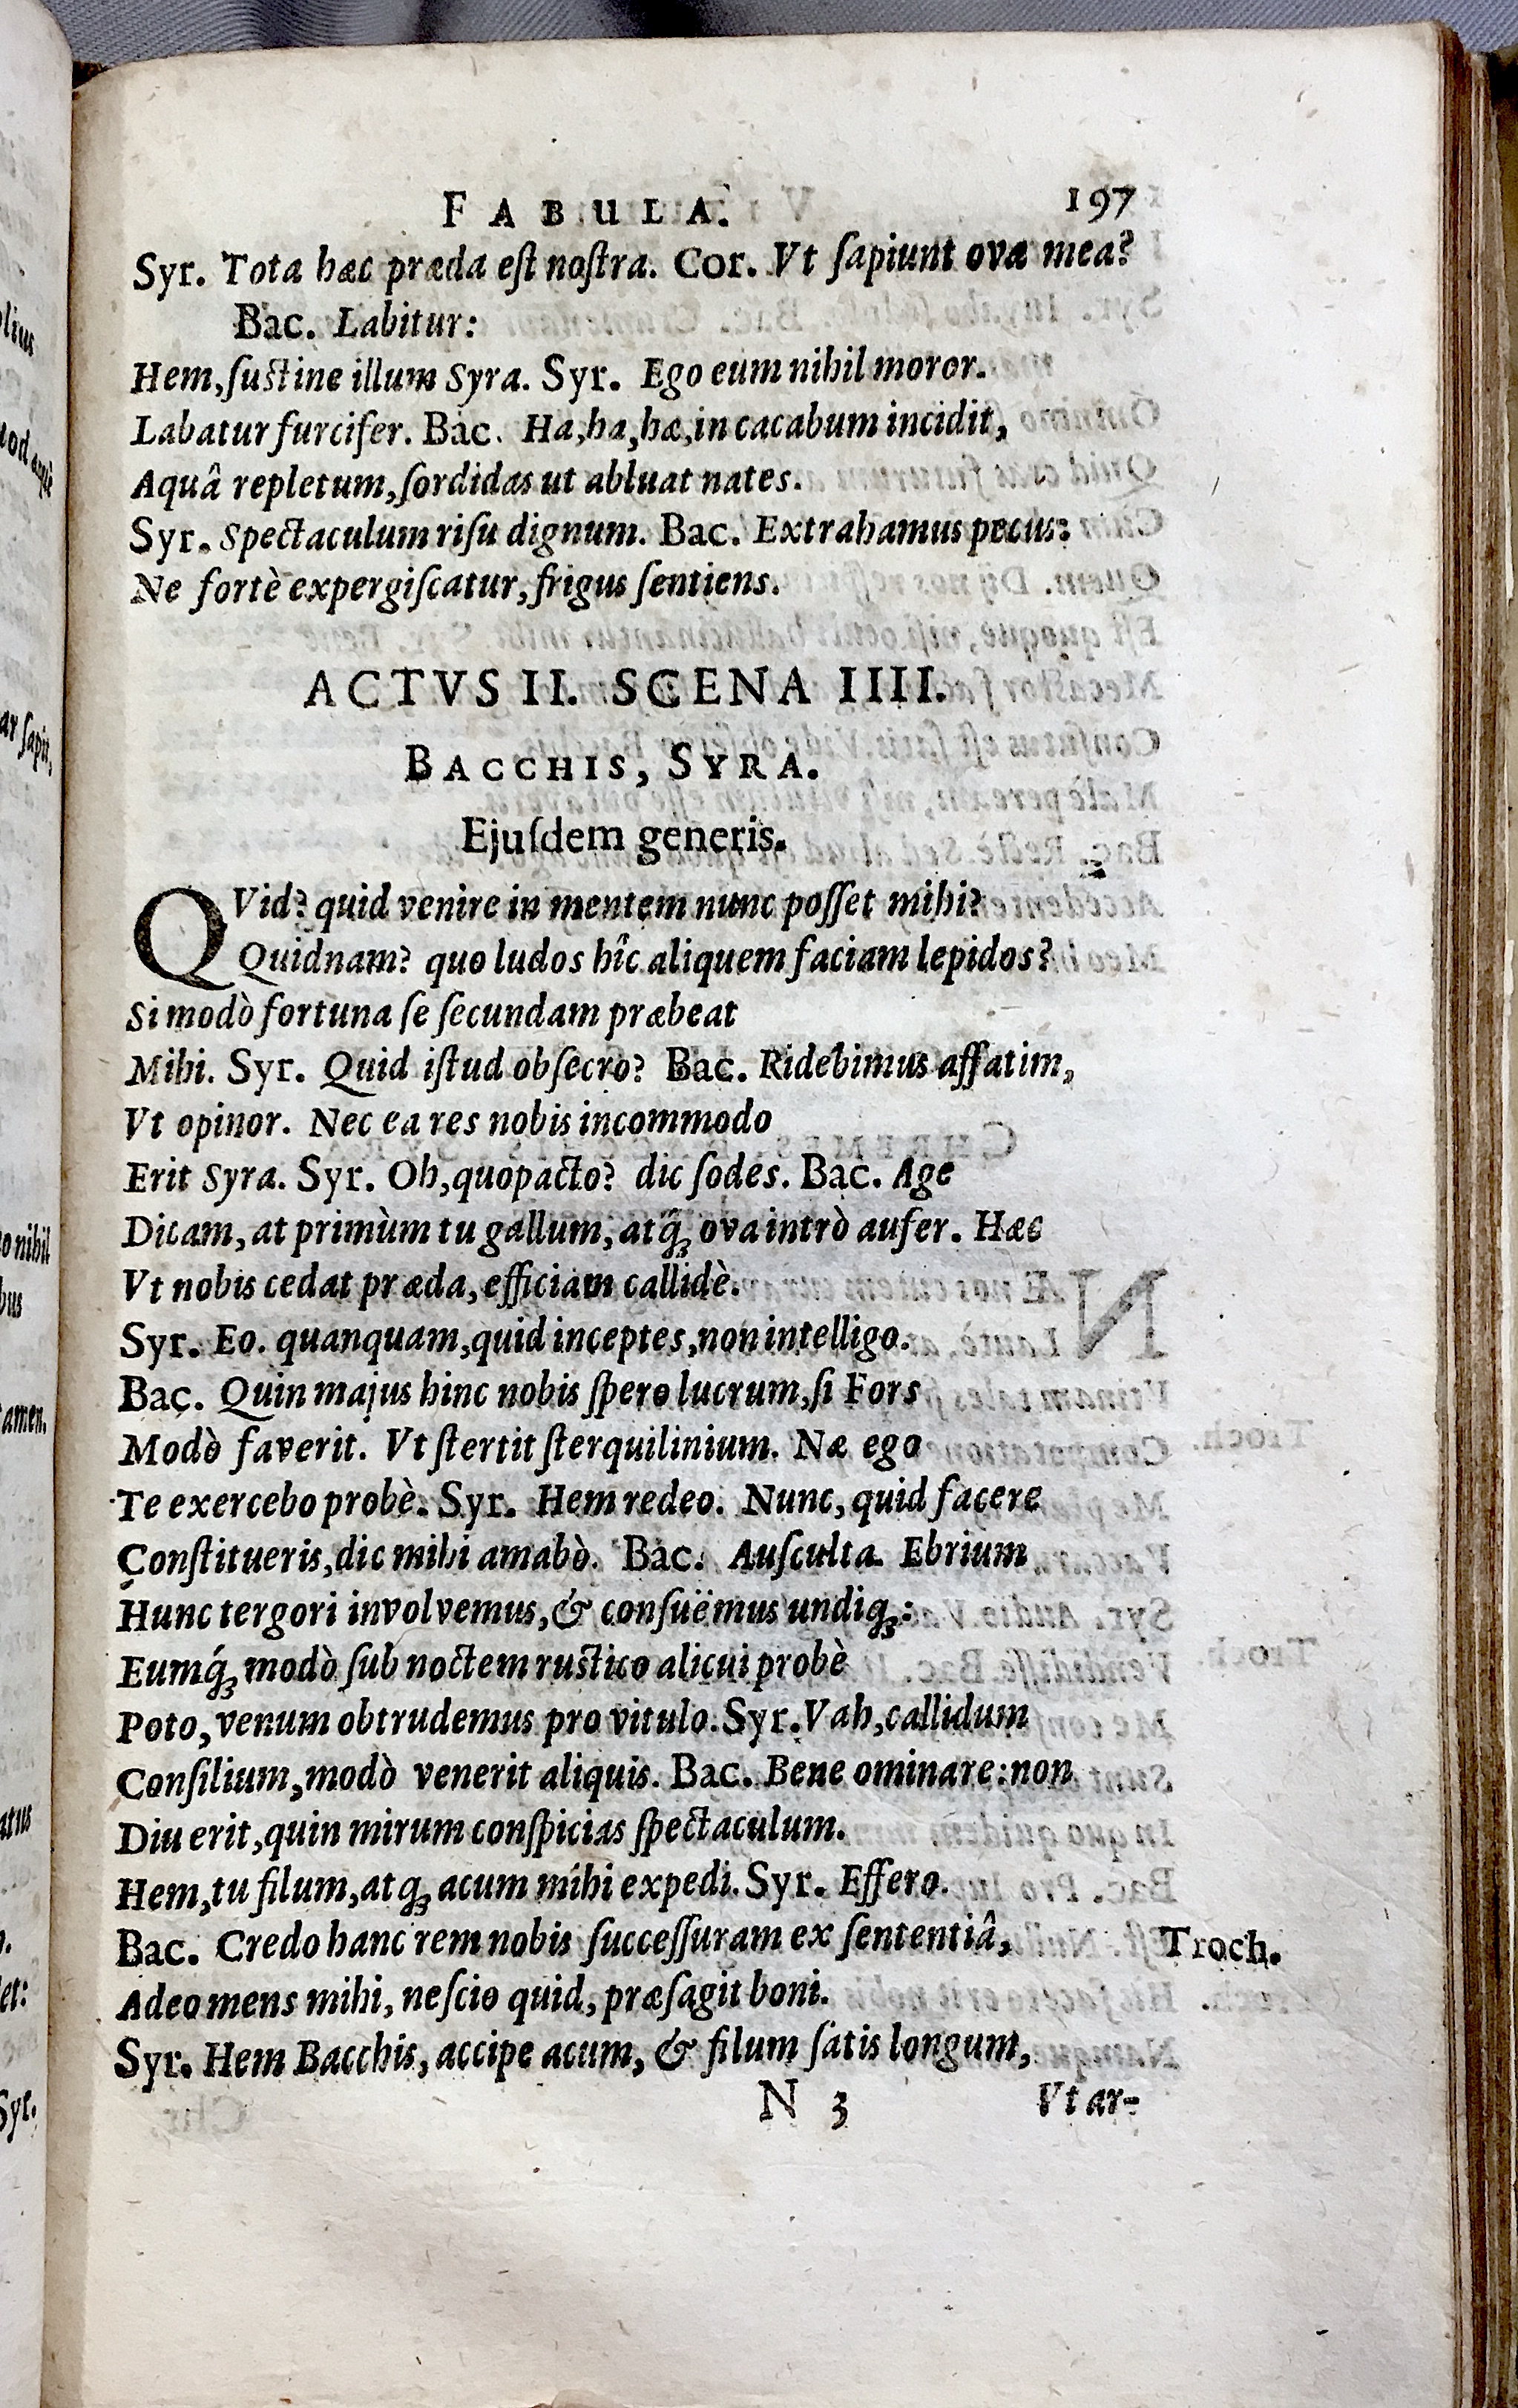 FABULA. 197
Syr. Tota hæc præda eſt noſtra. Cor. Vt ſapiunt ova mea?
Bac. Labitur:
Hem, ſuſtine illum Syra. Syr. Ego eum nihil moror.
Labatur furcifer. Bac. Ha, ha, hæ, in cacabum incidit,
Aquâ repletum, ſordidas ut abluat nates.
Syr. Spectaculum riſu dignum. Bac. Extrahamus pecus:
Ne fortè expergiſcatur, frigus ſentiens.
ACTVS II. SCENA IIII.
BACCHIS, SYRA.
Ejuſdem generis.
QVid? quid venire in mentem nunc poſſet mihi?
Quidnam? quo ludos hîc aliquem faciam lepidos?
Si modò fortuna ſe ſecundam præbeat
Mihi. Syr. Quid iſtud obſecro? Bac. Ridebimus affatim,
Vt opinor. Nec ea res nobis incommodo
Erit Syra. Syr. Oh, quo pacto? dic ſodes. Bac. Age
Dicam, at primùm tu gallum, atq́ꝫ ova intrò aufer. Hæc
Vt nobis cedat præda, efficiam callidè.
Syr. Eo. quanquam, quid inceptes, non intelligo.
Bac. Quin majus hinc nobis ſpero lucrum, ſi Fors
Modò faverit. Vt ſtertit ſterquilinium. Næ ego
Te exercebo probè. Syr. Hem redeo. Nunc, quid facere
Conſtitueris, dic mihi amabò. Bac. Auſculta. Ebrium
Hunc tergori involvemus, & conſuëmus undiqꝫ:
Eumq́ꝫ modò ſub noctem ruſtico alicui probè
Poto, venum obtrudemus pro vitulo. Syr. Vah, callidum
Conſilium, modò venerit aliquis. Bac. Bene ominare: non
Diu erit, quin mirum conſpicias ſpectaculum.
Hem, tu filum, atqꝫ acum mihi expedi. Syr. Effero.
Bac. Credo hanc rem nobis ſucceſſuram ex ſententiâ, Troch.
Adeo mens mihi, neſcio quid, præſagit boni.
Syr. Hem Bacchis, accipe acum, & filum ſatis longum,
N 3 Vt ar-